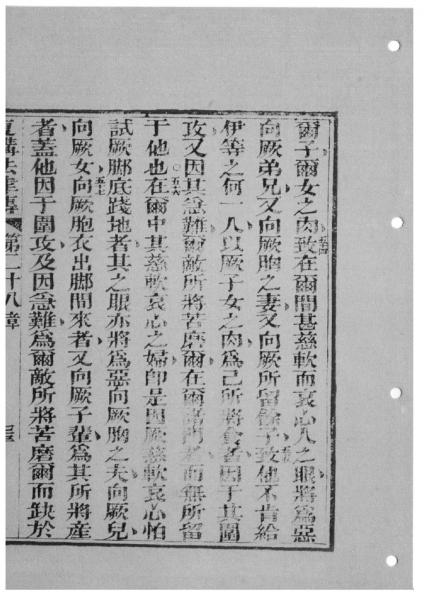 爾子爾女之肉致在爾間甚慈軟而哀心人之眼將為惡
向厥弟兄又向厥胸之妻又向厥所留餘子致他不肯給
伊等之何一人以厥子女之肉為己所將食者因于其圍
攻又因其急難爾敵所將苦磨爾在爾諸門者而無所留
于他也在爾中其慈軟哀心之婦即是因厥慈軟哀心怕
試厥脚底踐地者其之眼亦將為惡向厥胸之夫向厥兒
向厥女向厥胞衣出脚間來者又向厥子輩為其所將產
者蓋他因于圍攻及因急難為爾敵所將苦磨爾而缺於
復講法律傳 第二十八章